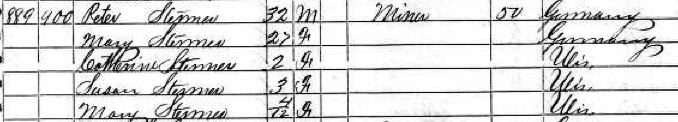 889 900 Peter Stermer 32 M Miner 50 Germany
Mary Stermer 27 F Germany
Catherine Stermer 2 F Wis.
Susan Stermer 3 F Wis.
Mary Stermer 4/12 F Wis.